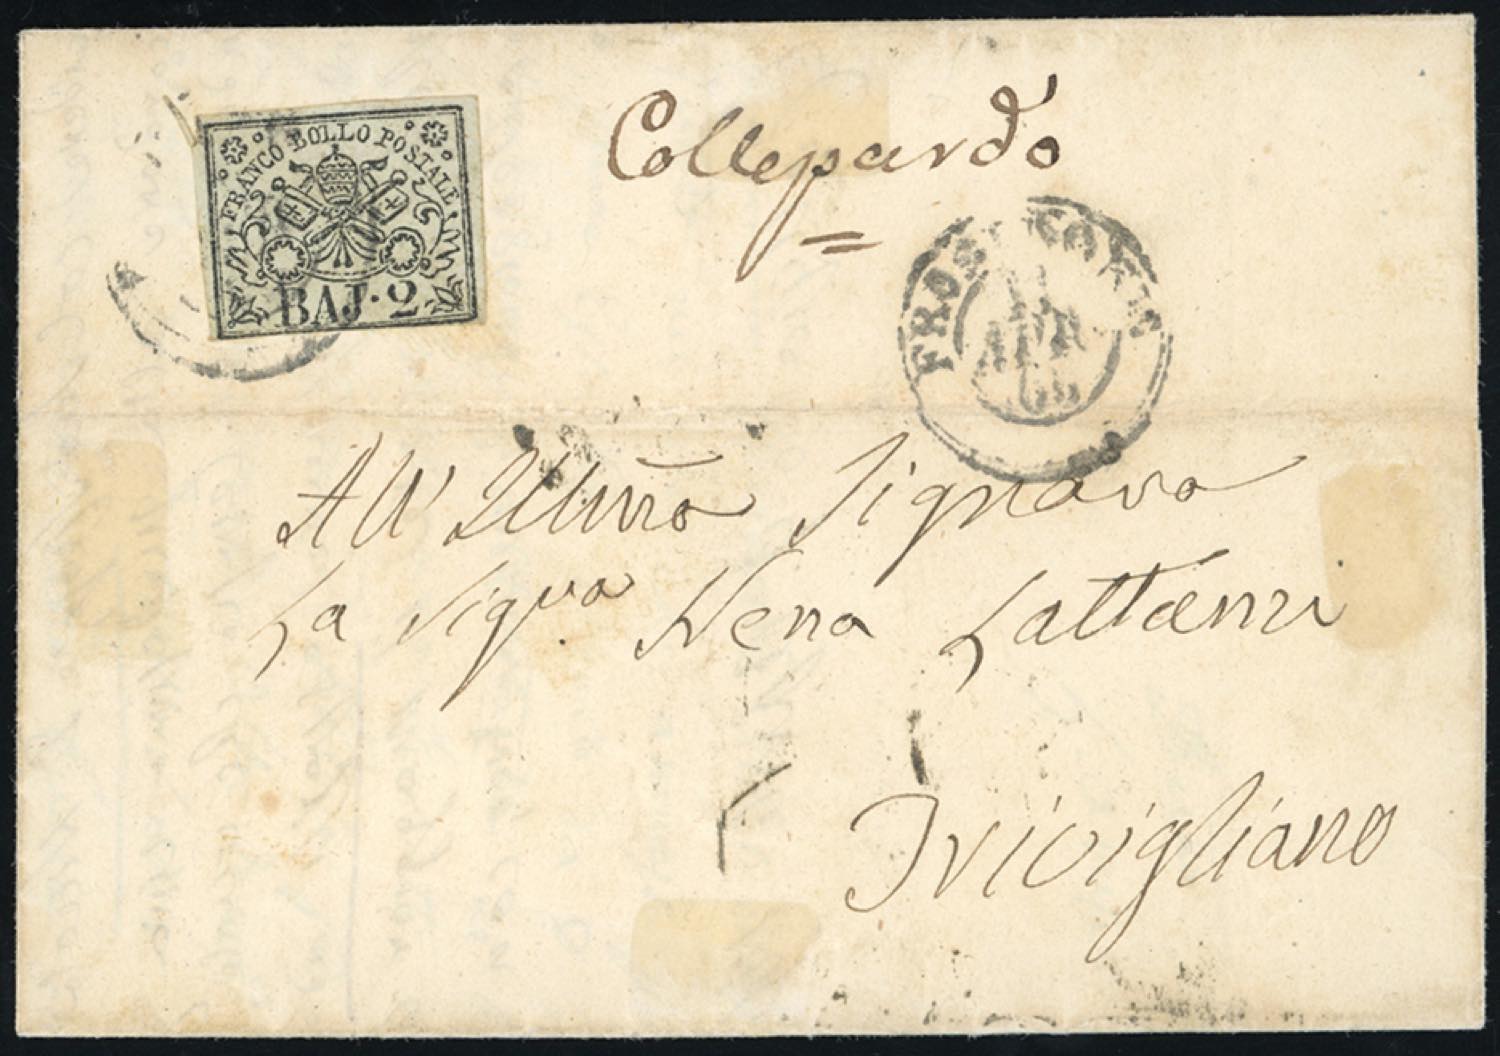 FRANCO BOLLO POSTALE
BAJ. 2
Collepardo
FROSINONE
11
APR
65
All' Illma Signora
La Sigra Nena Lattanzi
Trivigliano